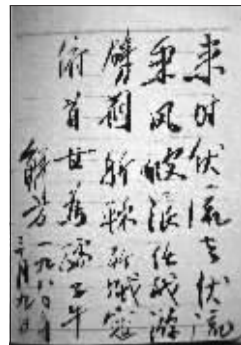 来时伏流去伏流
乘风破浪任我游
劈荆斩棘歼寇
俯首甘为孺子牛
解芳 一九八〇年
三月九日